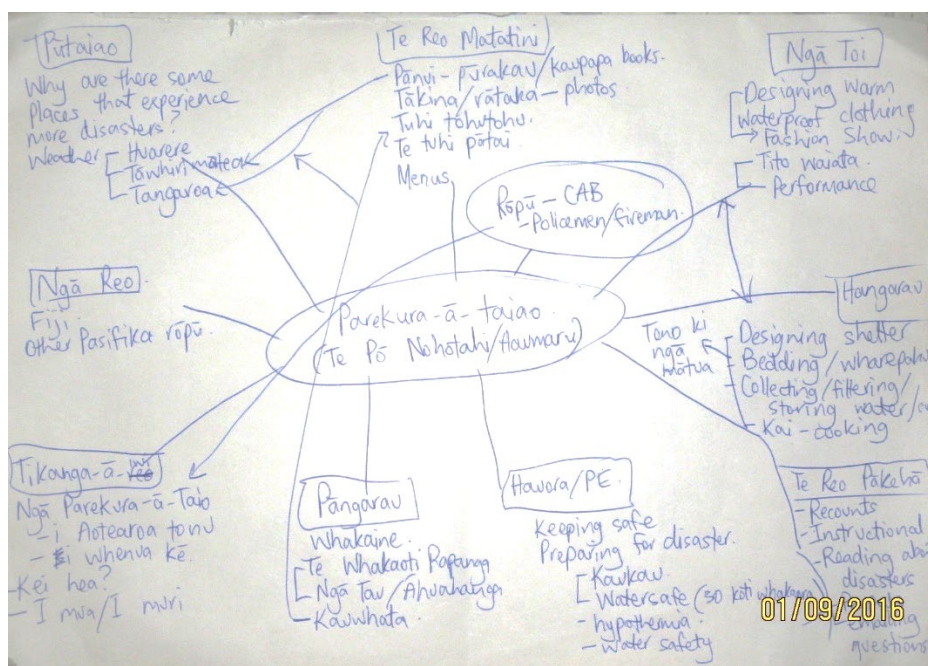 Pūtaiao
Why are there some
Places that experience
more disasters?
Weather - Huarere
Tāwhirimātea
Tangaroa
Te Reo Matatini
Pānui - pūrakau/kaupapa books.
Tākina/rātaka - photos
Tuhi tohutohu.
Te tuhi pātai
Menus
Ngā Toi
Designing warm
waterproof clothing
Fashion Show.
Tito waiata.
Performance
Rōpū - CAB
- Policemen/fireman.
Ngā Reo
Fiji
Other Pasifika rōpū.
Parekura-ā-taiao
(Te Pō Nohotahi/Haumaru)
Hangarau
Tono ki
ngā
mātua
Designing shelter
- Bedding/
- Collecting/filtering/
storing water/
- Kai - cooking
Tikanga-ā-iwi
Ngā Parekura-ā-Taio
- i Aotearoa tonu
- i whenua kē.
- Kei hea?
- I mua/I muri
Pāngarau
Whakaine.
Te Whakaoti Rapanga
Ngā Tau/Āhuahanga
- Kauwhata.
Hauora/PE.
Keeping safe
Preparing for disaster.
- Kaukau.
- Watersafe (30 koti
- hypothermia.
- water safety
Te Reo Pākehā
- Recounts
- Instructional
- Reading
disasters
questions
01/09/2016